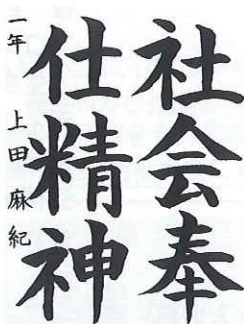 社会奉
仕精神
一年 上田麻紀